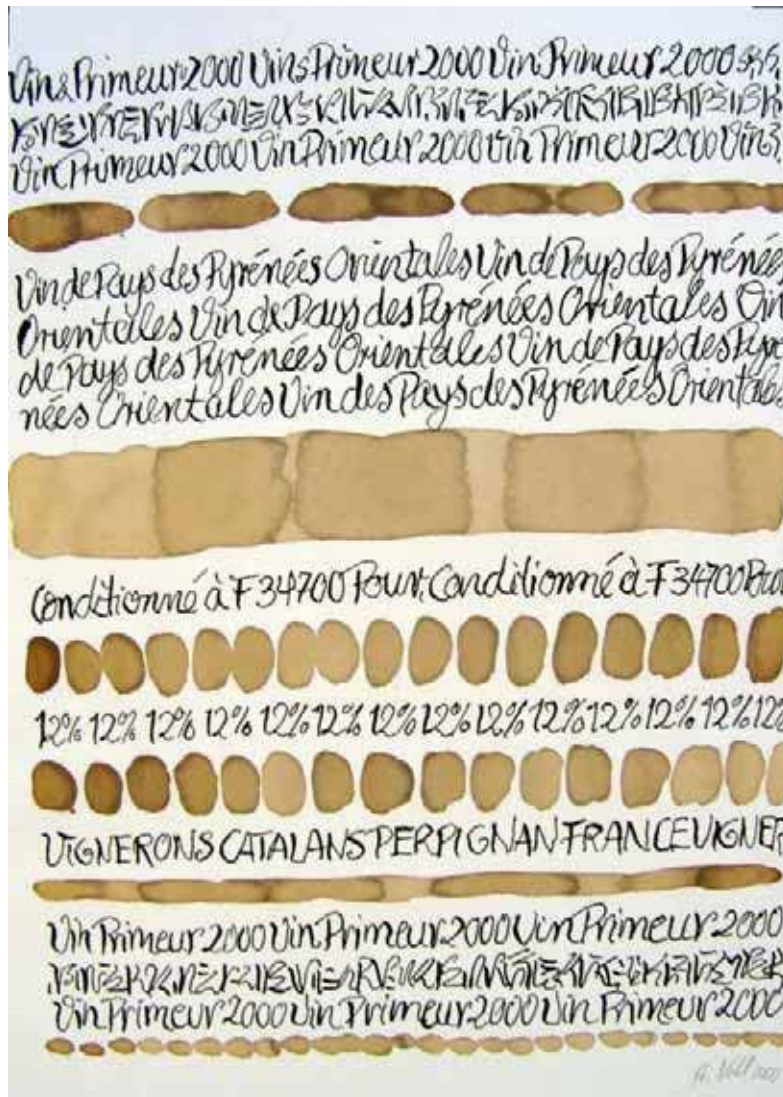 Vins Primeur 2000 Vins Primeur 2000 Vin Primeur 2000
Vin Primeur 2000 Vin Primeur 2000 Vin Primeur 2000 Vins
Vin de Pays des Pyrénées Orientales Vin de Pays des Pyrénée
Orientales Vin de Pays des Pyrénées Orientales Vin
de Pays des Pyrénées Orientales Vin de Pays des Pyr
nées Orientales Vin des Pays des Pyrénées Orientales
Conditionné à F 34700 Pour. Conditionné à F 34700 Pour
12% 12% 12% 12% 12% 12% 12% 12% 12% 12% 12% 12% 12% 12%
VIGNERONS CATALANS PERPIGNAN FRANCE VIGNER
Vin Primeur 2000 Vin Primeur 2000 Vin Primeur 2000
Vin Primeur 2000 Vin Primeur 2000 Vin Primeur 2000